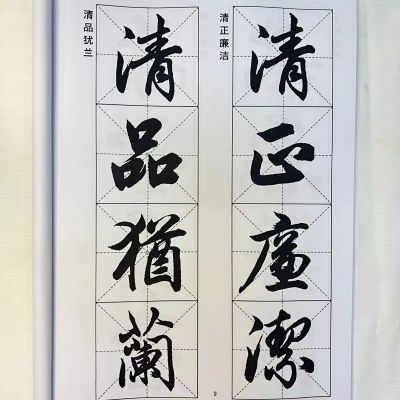 清正廉洁
清正廉潔
清品犹兰
清品猶蘭
9